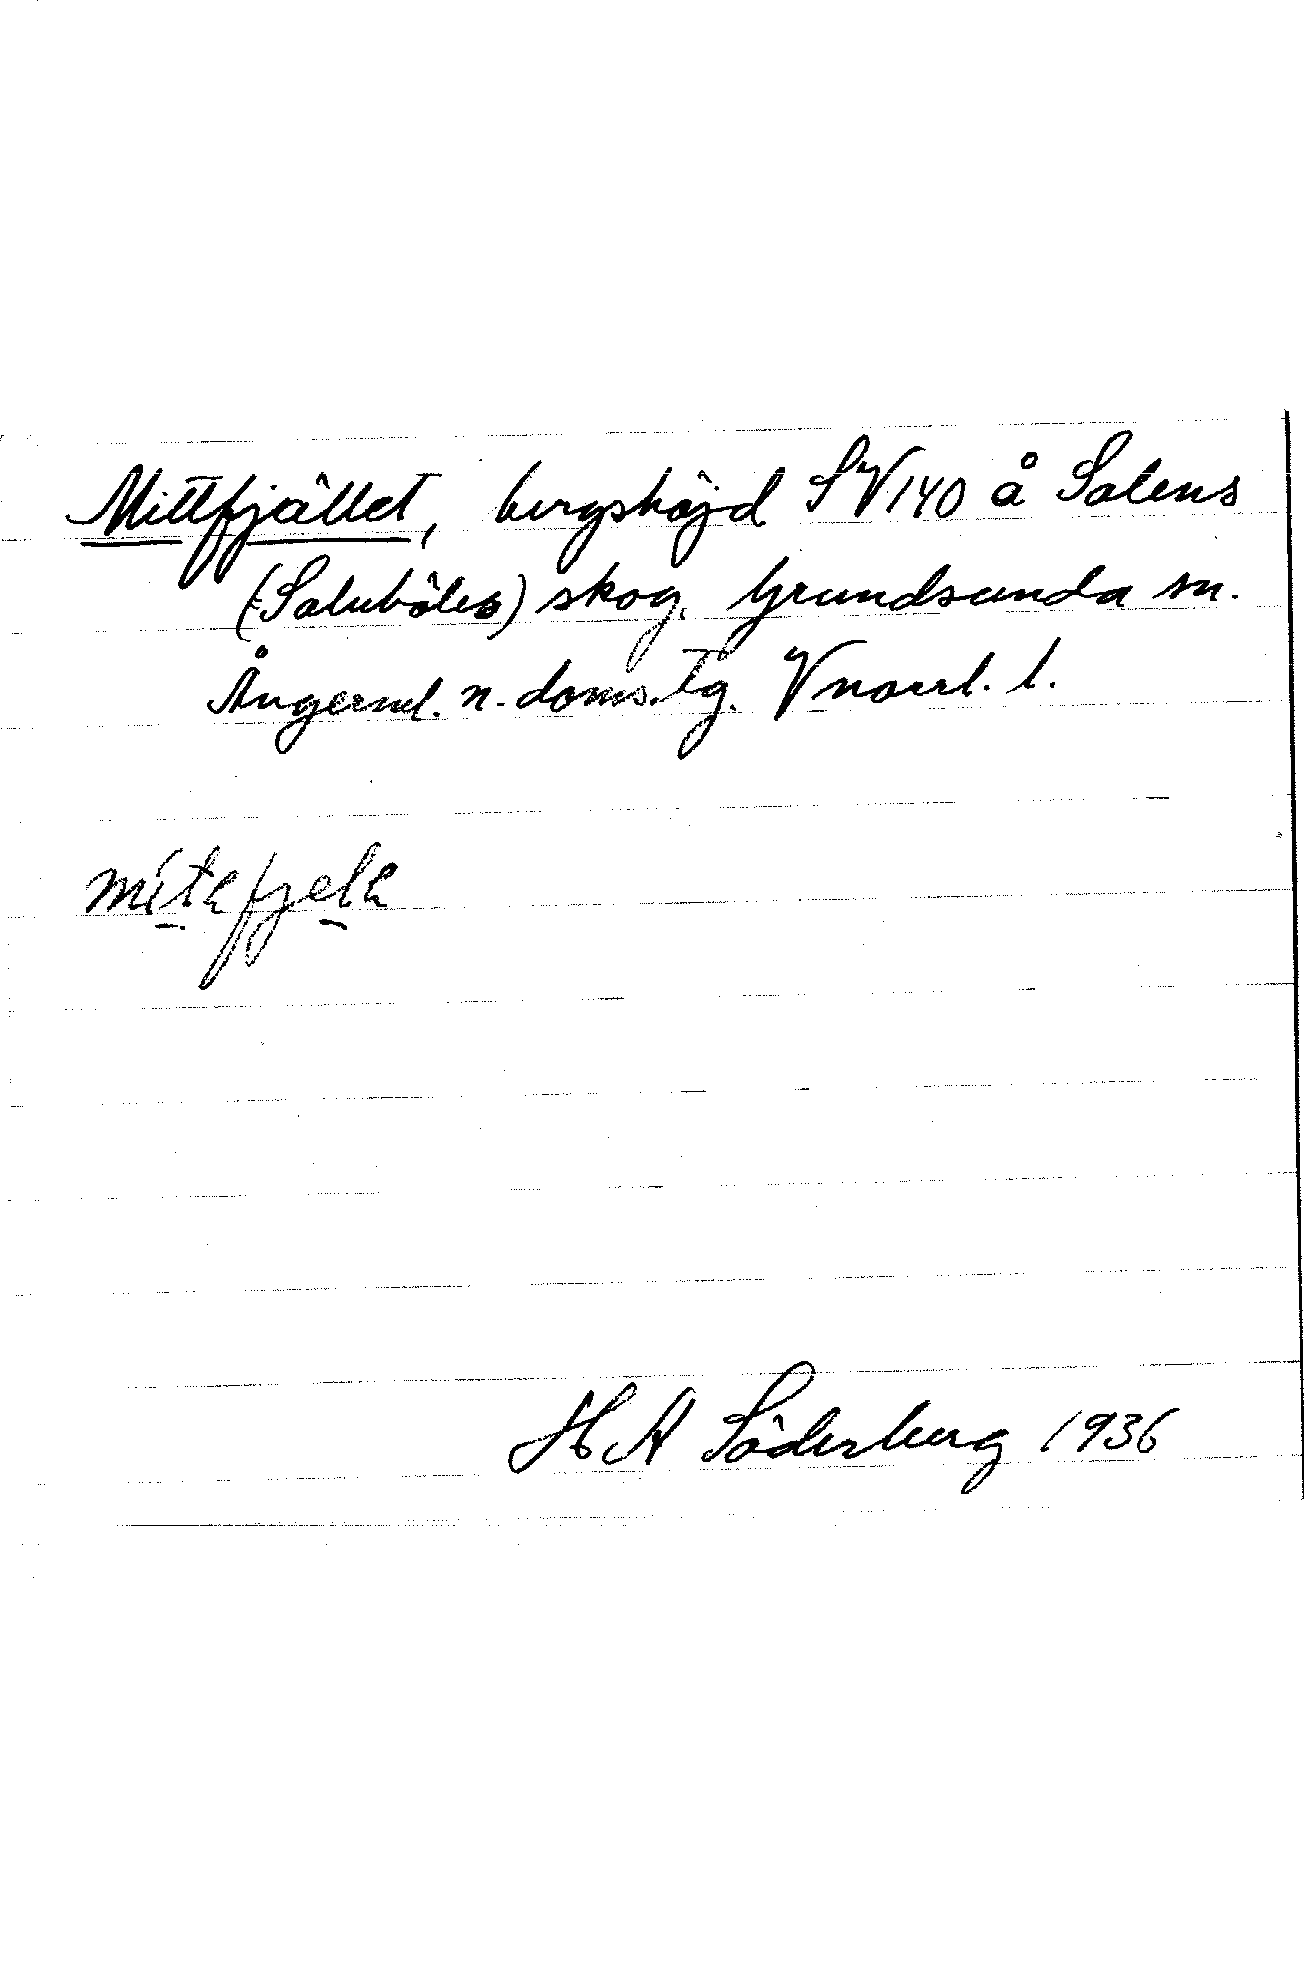 Mittfjället, bergshöjd SV 140 å Salens
(Saluböles) skog. Grundsunda sn.
Ångerml. n. doms. tg. Vnorrl. l.
mitafjela
H A Söderberg 1936